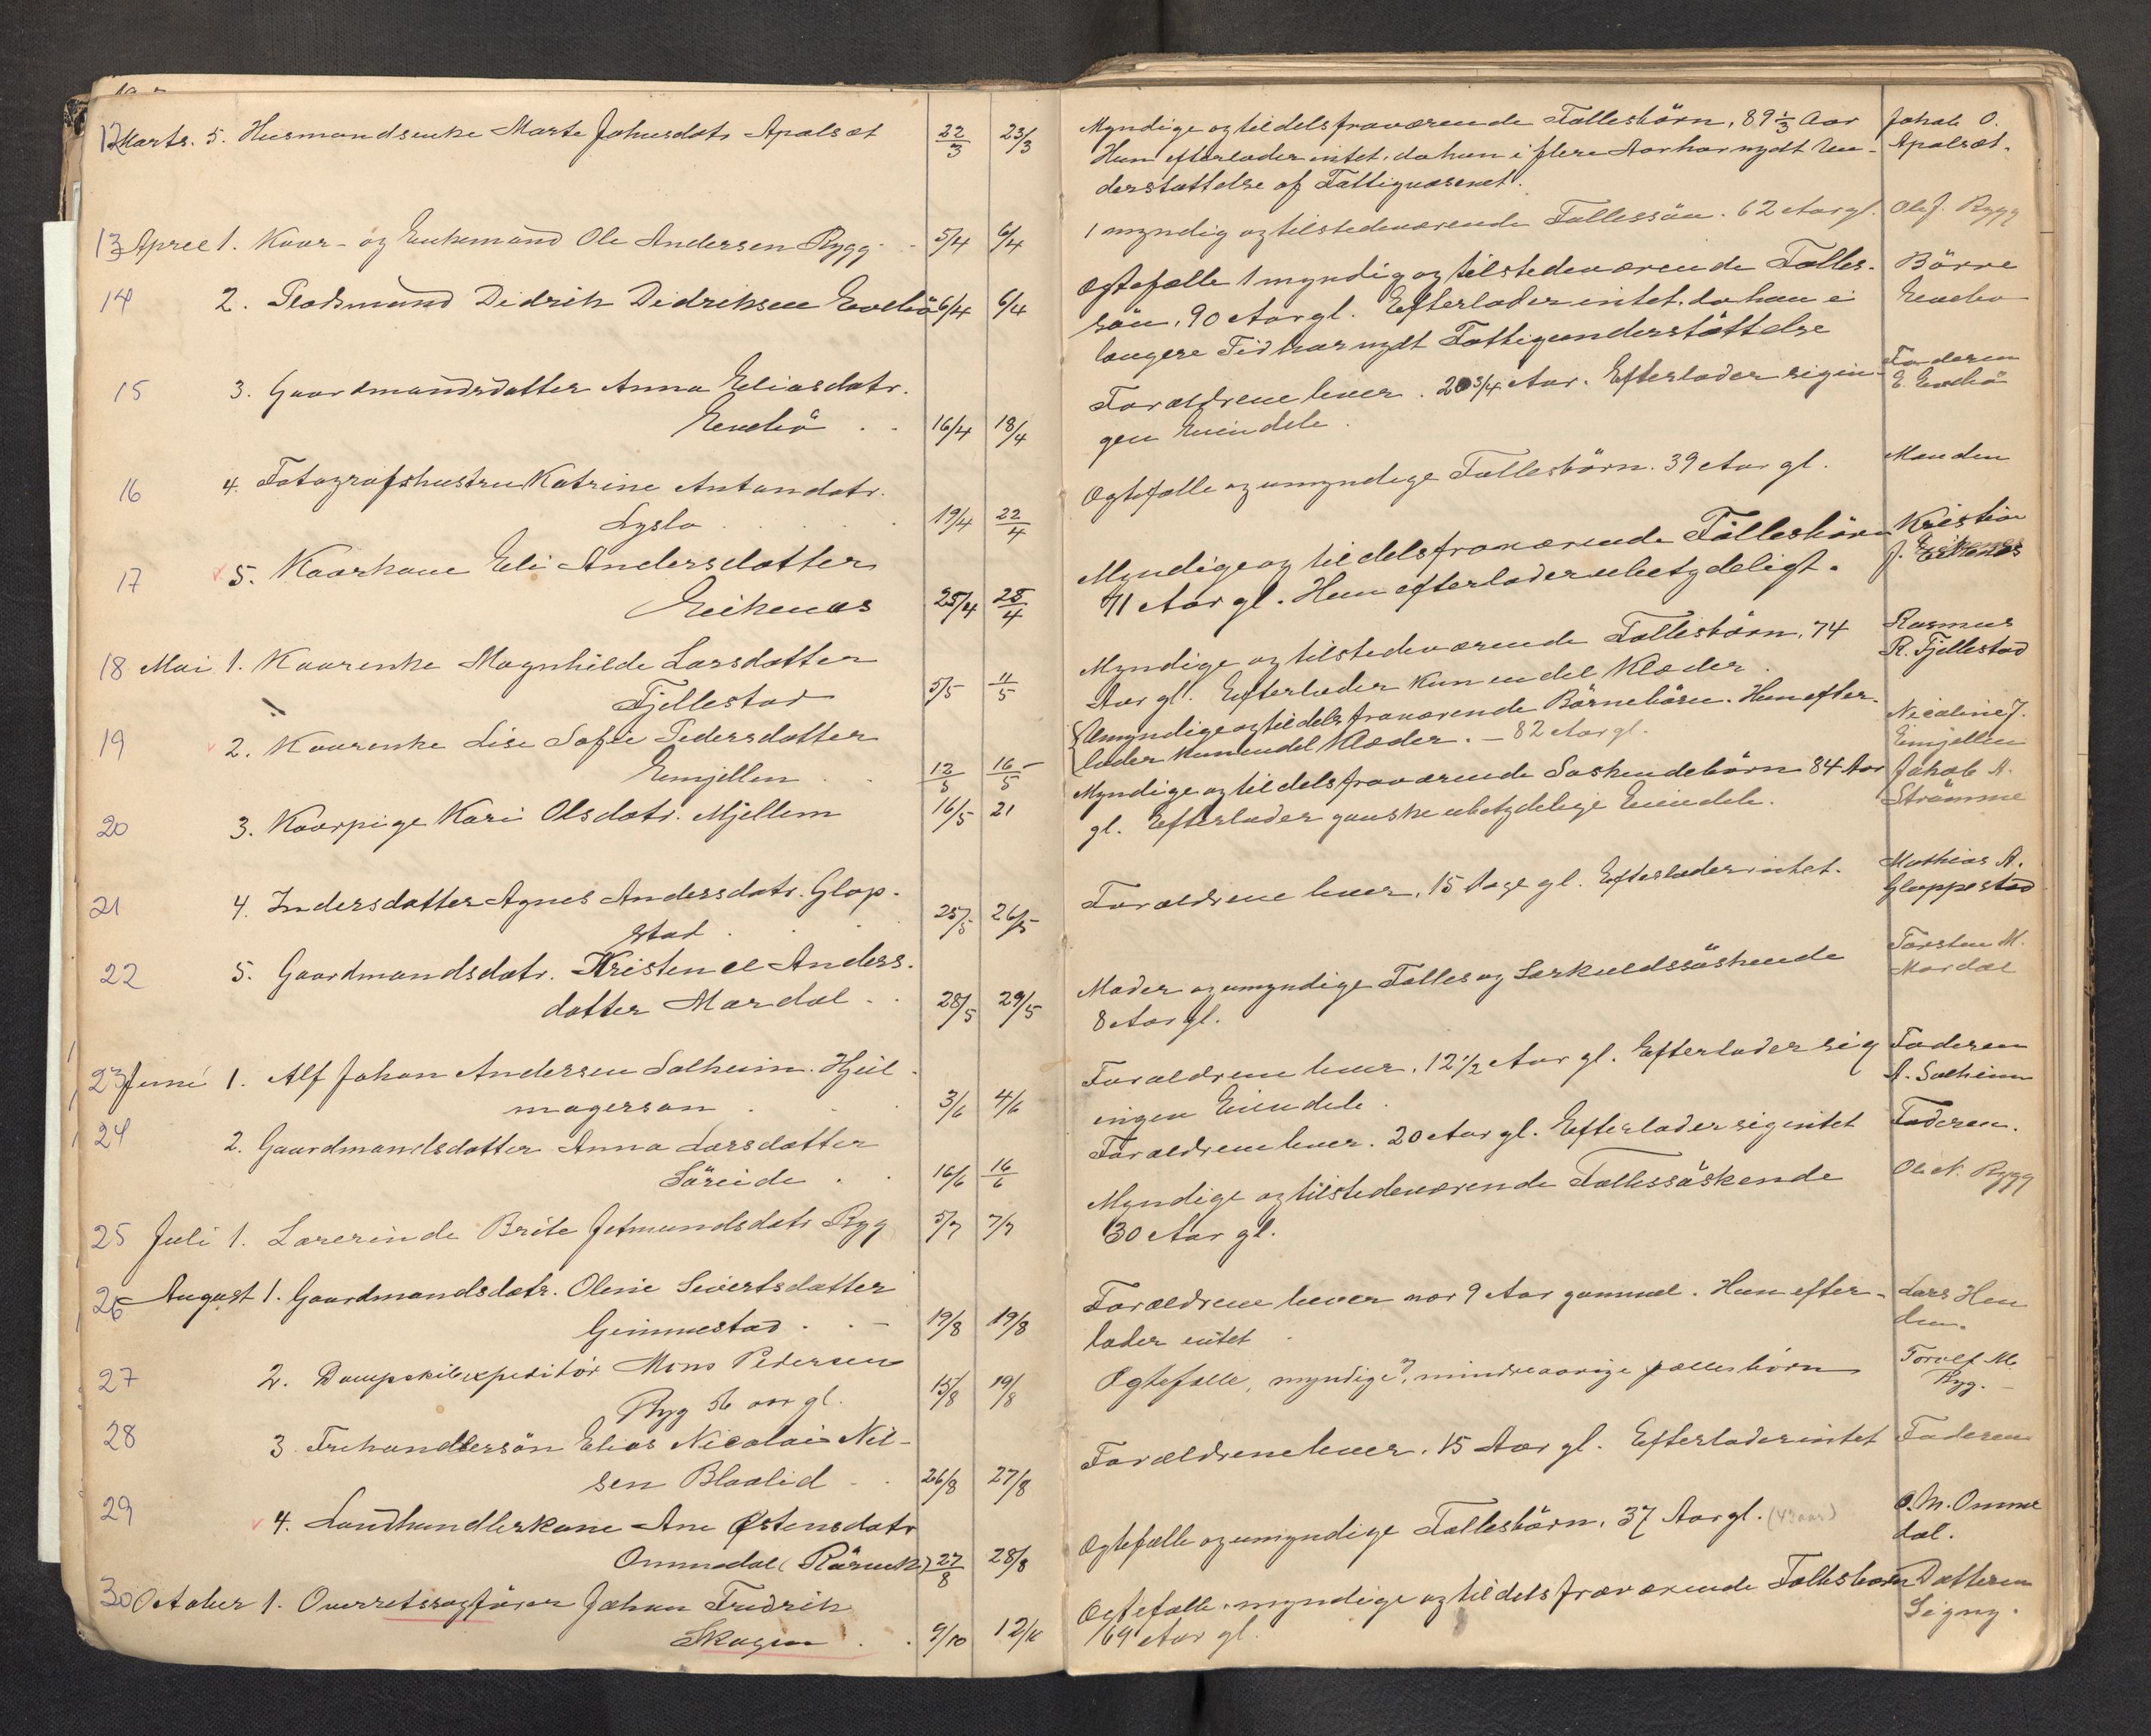 12 Marts. 5. Husmandsenke Marte Johnsdatr Apalset 22/3 23/3
13 April 1. Kaar- og Enkemand Ole Andersen Rygg 5/4 6/4
14 2. Pladsmand Didrik Didriksen Evebö 6/4 6/4
15 3. Gaardmandsdatter Anna Eliasdatr.
Evebö 16/4 18/4
16 4. Fotografshustru Katrine Antondatr.
Lyslo 19/4 22/4
17 5. Kaarkone Eli Andersdatter
Eikenæs 25/4 28/4
18 Mai 1. Kaarenke Magnhilde Larsdatter
Fjellestad 5/5 11/5
19 2. Kaarenke Lise Sofie Pedersdatter
Eimjellen 12/5 16/5
20 3. Kaarpige Kari Olsdatr. Mjellem 16/5 21
21 4. Indersdatter Agnes Andersdatr. Glop-
stad 25/5 26/5
22 5. Gaardmandsdatr. Kristense Anders-
datter Mardal 28/5 29/5
23 Juni 1. Alf Johan Andersen Solheim. Hjul-
magersøn 3/6 4/6
24 2. Gaardmandsdatter Anna Larsdatter
Söreide 16/6 16/6
25 Juli 1. Lærerinde Brite Jetmundsdatr Ryg 5/7 7/7
26 August 1. Gaardmandsdatr. Oline Sivertsdatter
Gimmestad 19/8 19/8
27 2. Dampskibsexpeditör Mons Pedersen
Ryg 56 aar gl. 15/8 19/8
28 3. Trehandlersön Elias Nicolai Nil-
sen Blaalid 26/8 27/8
29 4. Landhandlerkone Ane Østensdatr
Ommedal (Rörvik) 27/8 28/8
30 October 1. Overretssagförer Johan Fredrik
Skogen 9/10 12/10
Myndige og tildels fraværende Fællesbörn, 89 1/3 Aar Jakob O.
Hun efterlader intet, da hun i flere Aar har nydt Un- Apalset.
derstøttelse af Fattigvæsenet.
1 myndig og tilstedeværende Fællessön. 62 Aar gl. Ole J. Rygg
Ægtefælle 1 myndig og tilstedeværende Fælles- Börre
sön, 90 Aar gl. Efterlader intet, da han i Evebö
længere Tid har nydt Fattigunderstöttelse
Forældrene lever. 20 3/4 Aar. Efterlader sig in- Faderen
gen Eiendele. E. Evebö
Ægtefælle og umyndige Fællesbörn. 39 Aar gl. Manden
Myndige og tildels fraværende Fællesbörn Kristian
71 Aar gl. Hun efterlader ubetydeligt. J. Eikenæs
Myndige og tilstedeværende Fællesbörn, 74 Rasmus
Aar gl. Efterlader kun en del Klæder. R. Fjellestad
Umyndige og tildels fraværende Börnebörn. Hun efter- Nicoline J.
lader kun en del Klæder. - 82 Aar gl. Eimjellen
Myndige og tildels fraværende Söskendebörn 84 Aar Jakob A.
gl. Efterlader ganske ubetydelige Eiendele. Strömme
Forældrene lever, 15 Dage gl. Efterlader intet. Mathias A.
Gloppestad
Moder og umyndige Fælles og Særkuldssöskende Torsten M.
8 Aar gl. Mardal
Forældrene lever, 12 1/2 Aar gl. Efterlader sig Faderen
ingen Eiendele. A. Solheim
Forældrene lever. 20 Aar gl. Efterlader sig intet Faderen.
Myndige og tilstedeværende Fællessöskende Ole N. Rygg
30 Aar gl.
Forældrene lever nær 9 Aar gammel. Hun efter- Lars Hen
lader intet den.
Ægtefælle, myndige og mindreaarige fællesbörn Torolf M.
Ryg.
Forældrene lever, 15 Aar gl. Efterlader intet Faderen
Ægtefælle og umyndige Fællesbörn, 37 Aar gl. (43 aar) O. M. Omme
dal.
Ægtefælle, myndige og tildels fraværende Fællesbørn Datteren
69 Aar gl. Signy.